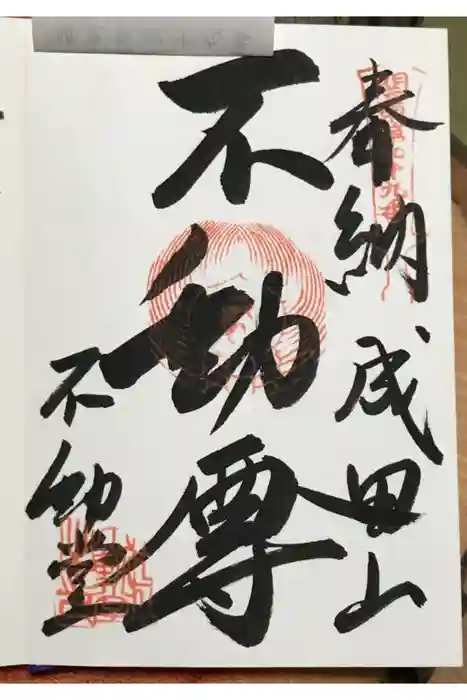 奉納 成田山
不動尊
不動堂